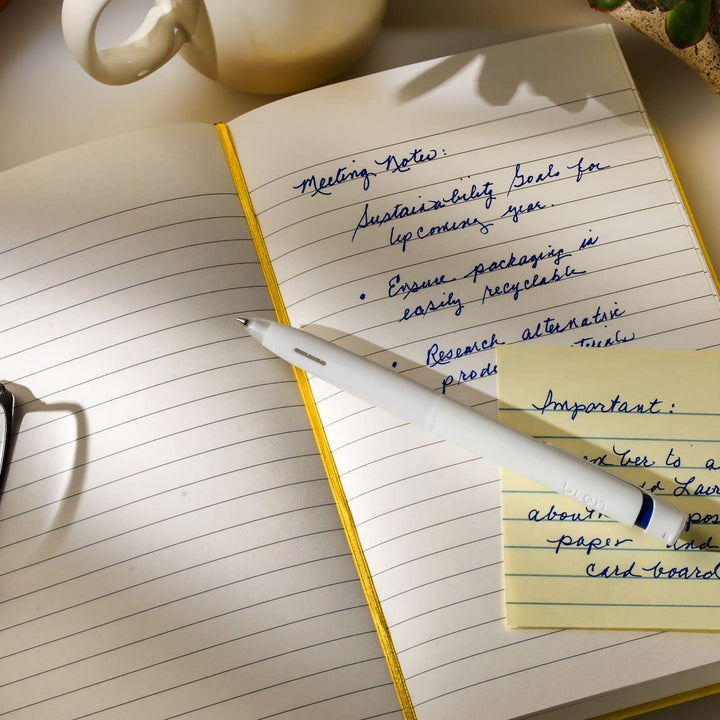 Meeting Notes:
Sustainability Goals for
Upcoming year.
• Ensure packaging in
easily recyclable
• Research alternative
Important:
to a
about
paper and
cardboard
blen